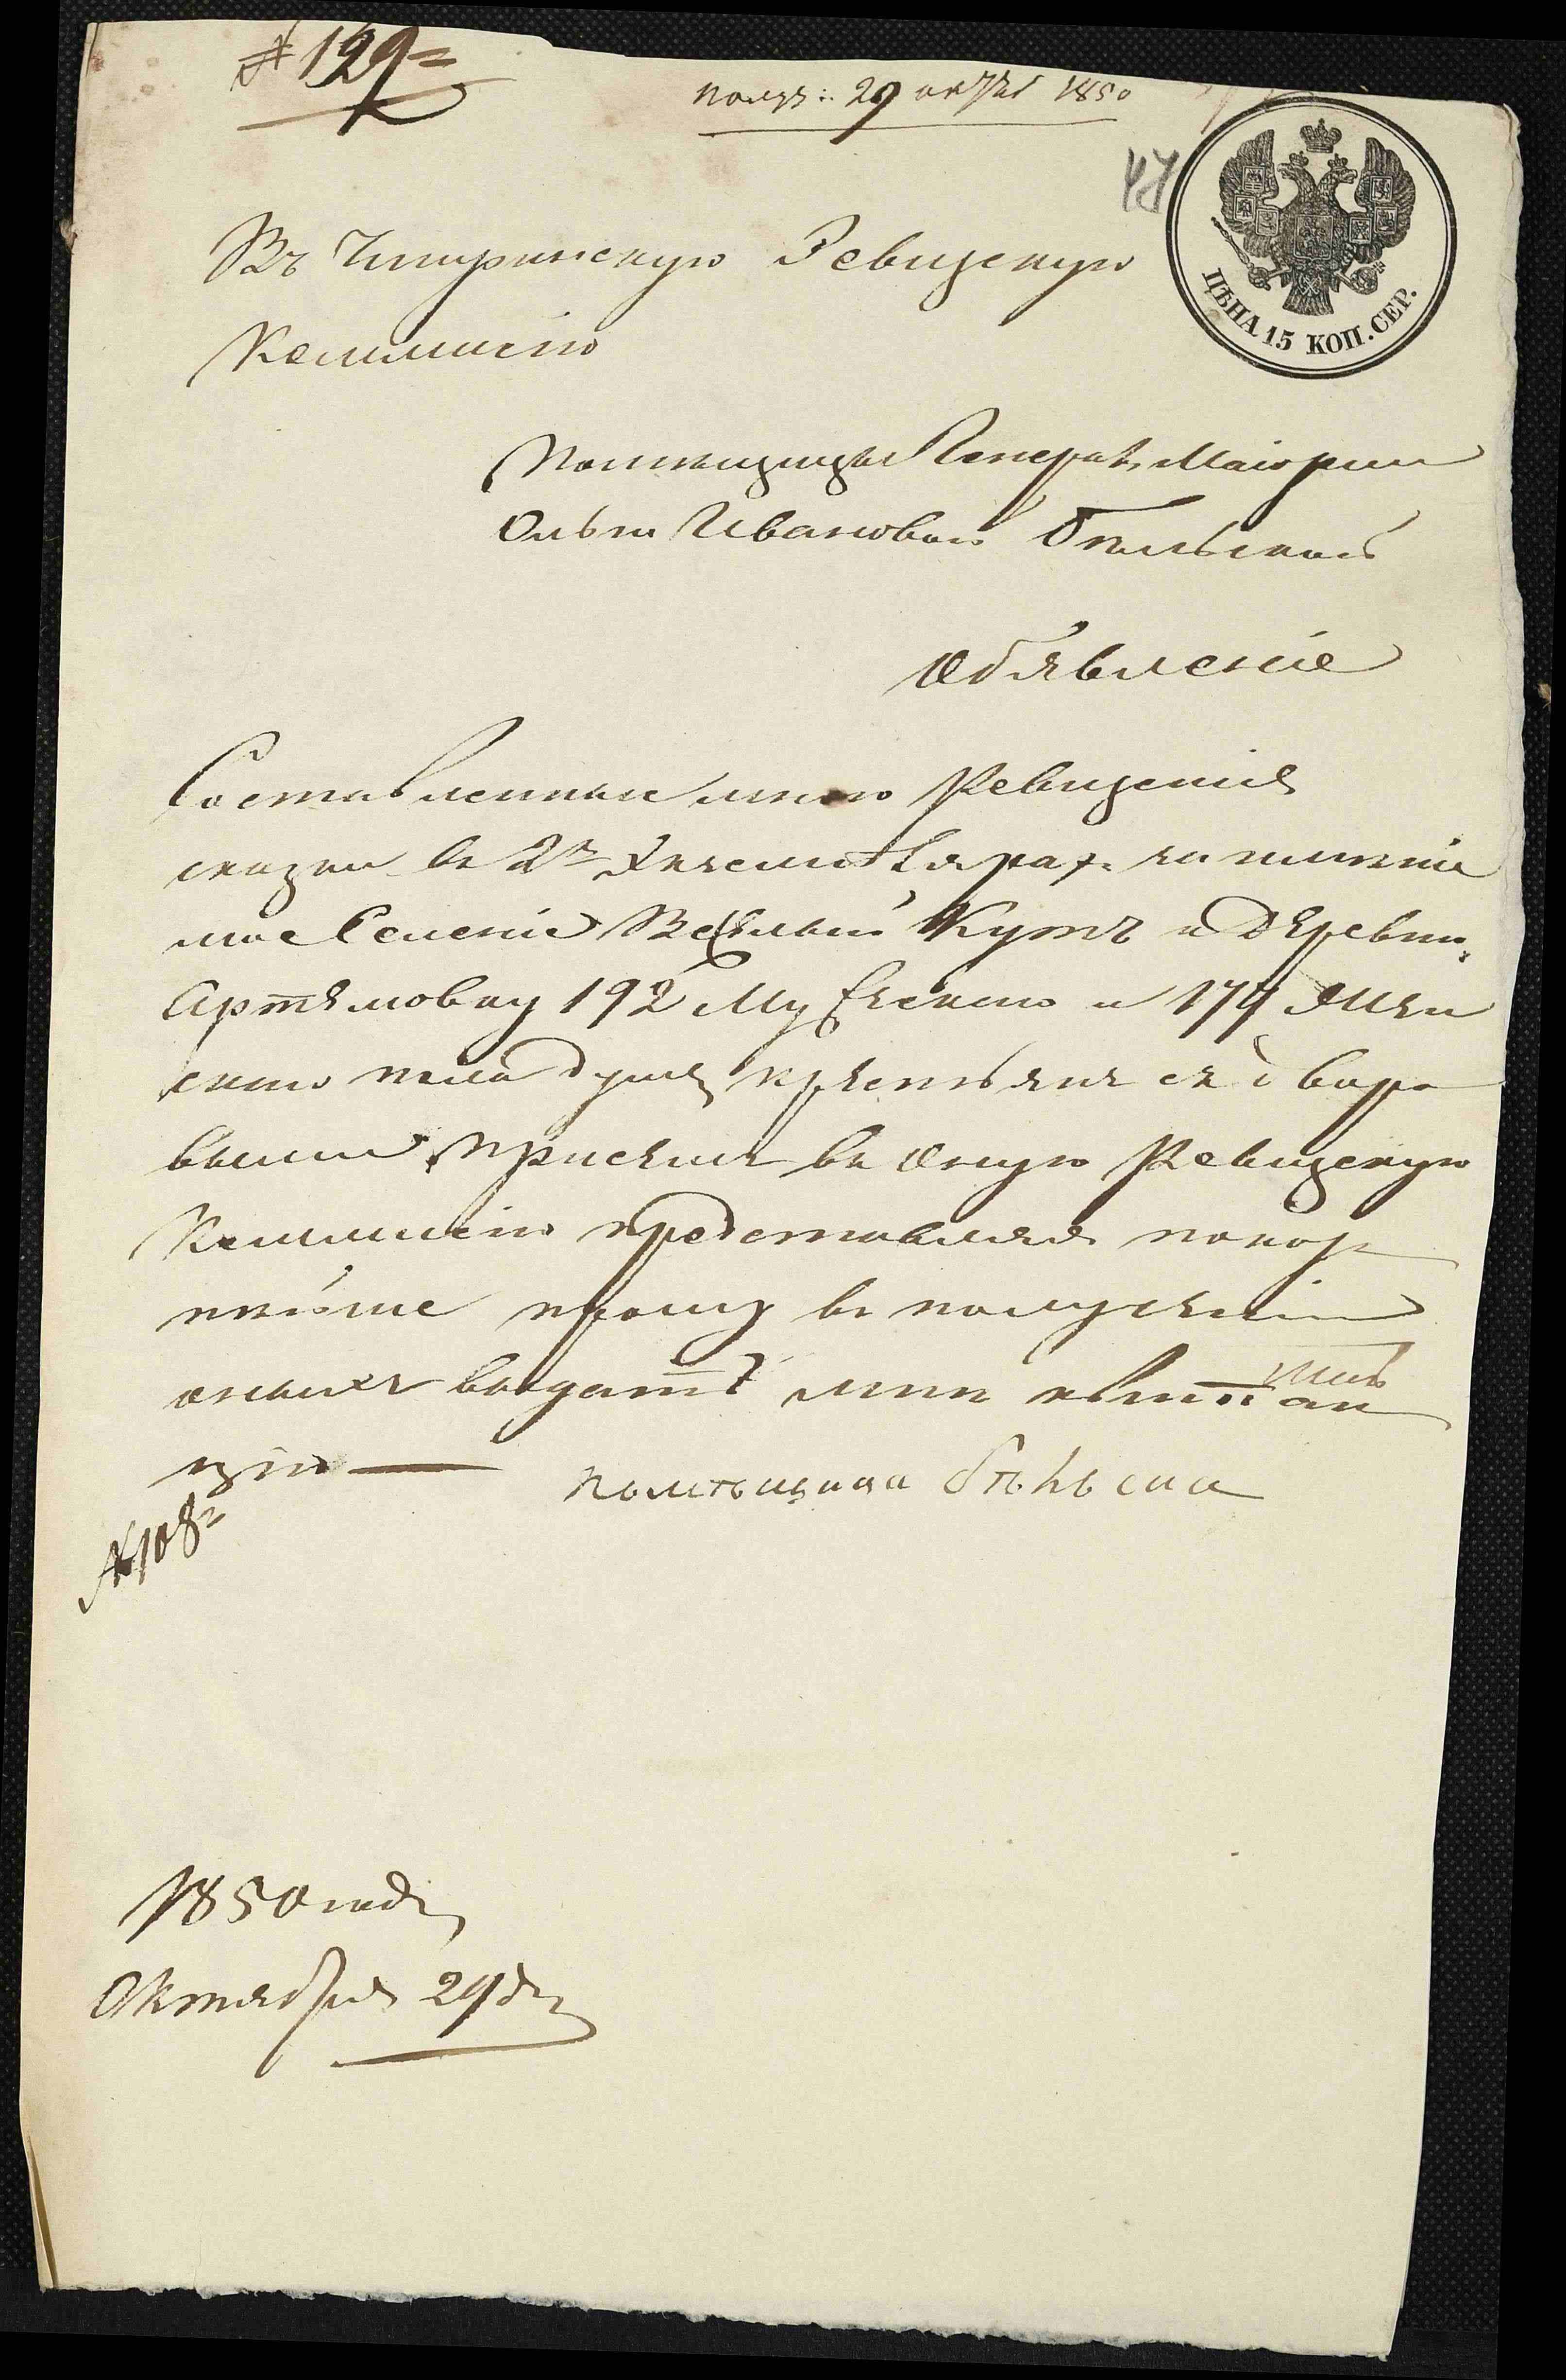 № 129
получ: 29 октяб 1850
47
ЦѢНА 15 КОП. СЕР.
Въ Чигиринскую Ревизскую
Коммисію
Помѣщицы Генералъ Маіорши
Ольги Ивановой Бѣльской
Объявленіе
Составленныя мною Ревизскія
сказки въ 2хъ Экземплярахъ на имѣніе
мое Селеніе Веселый Кутъ и деревню
Артемовку 192 Мужескаго и 177 Жен
скаго пола душъ крестьянъ съ дворо
выми, при семъ въ оную Ревизскую
Коммисію представляя покор
нѣйше прошу въ полученіи
оныхъ выдать мнѣ квитан
цію —
помѣщица бѣльска
№ 108
1850 года
Октября 29 дня